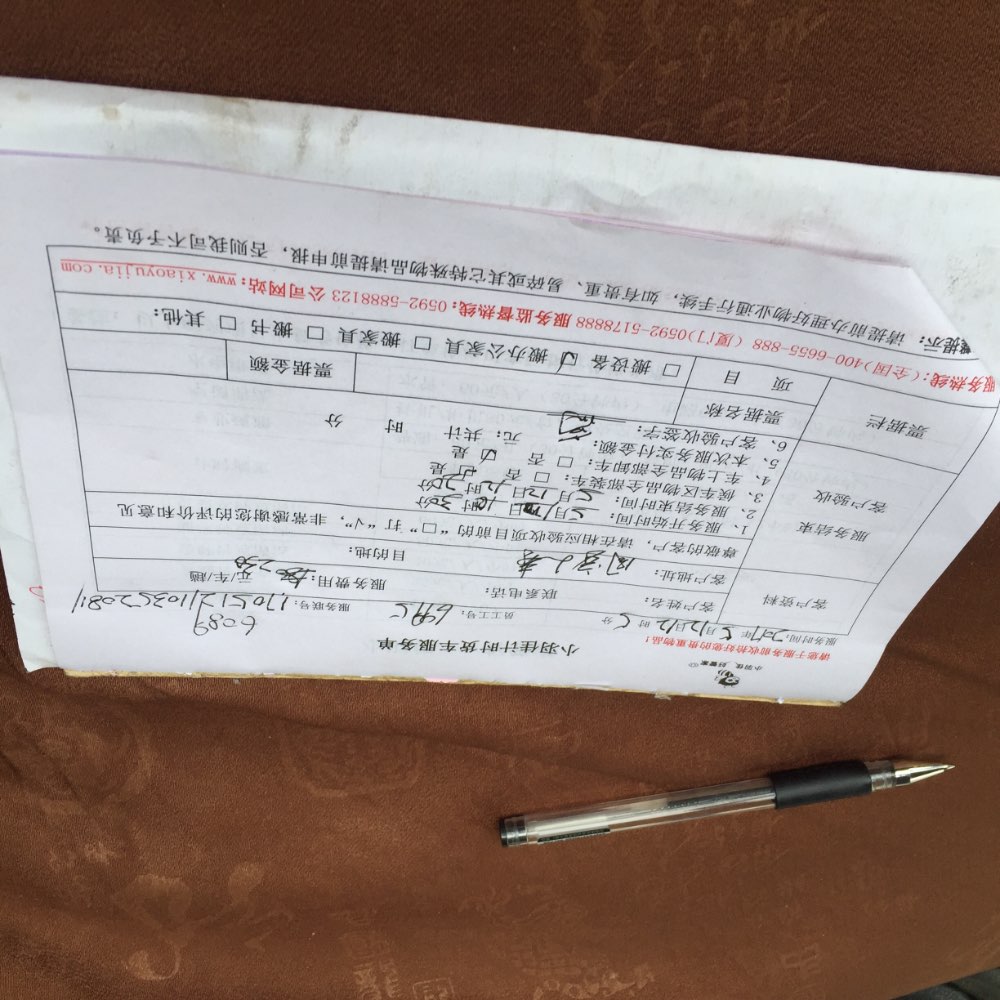 小羽佳计时放车服务单
请您于服务前收拾好您的贵重物品!
6089
服务时间: 2017年5月12日12时 分 员工工号: 649C 服务联号: 170512103520811
客户资料
客户姓名: 联系电话: 服务费用: 250 元/车/趟
客户地址: 目的地:
尊敬的客户, 请在相应验收项目前的“□”打“√”, 非常感谢您的评价和意见
服务结束
客户验收
1、服务开始时间: 5月12日10时30分
2、服务结束时间: 5月12日12时30分
3、候车区物品全部装车: □ 否 ☑ 是
4、车上物品全部卸车: □ 否 ☑ 是
5、本次服务实付金额: 元; 共计 时 分
6、客户验收签字:
票据栏 票据名称 票据金额
项 目 □ 搬设备 ☑ 搬办公家具 □ 搬家具 □ 搬书 □ 其他:
服务热线: (全国)400-6655-888 (厦门)0592-5178888 服务监督热线: 0592-5888123 公司网站: www.xiaoyujia.com
提示: 请提前办理好物业通行手续, 如有贵重、易碎或其它特殊物品请提前申报, 否则我司不予负责。